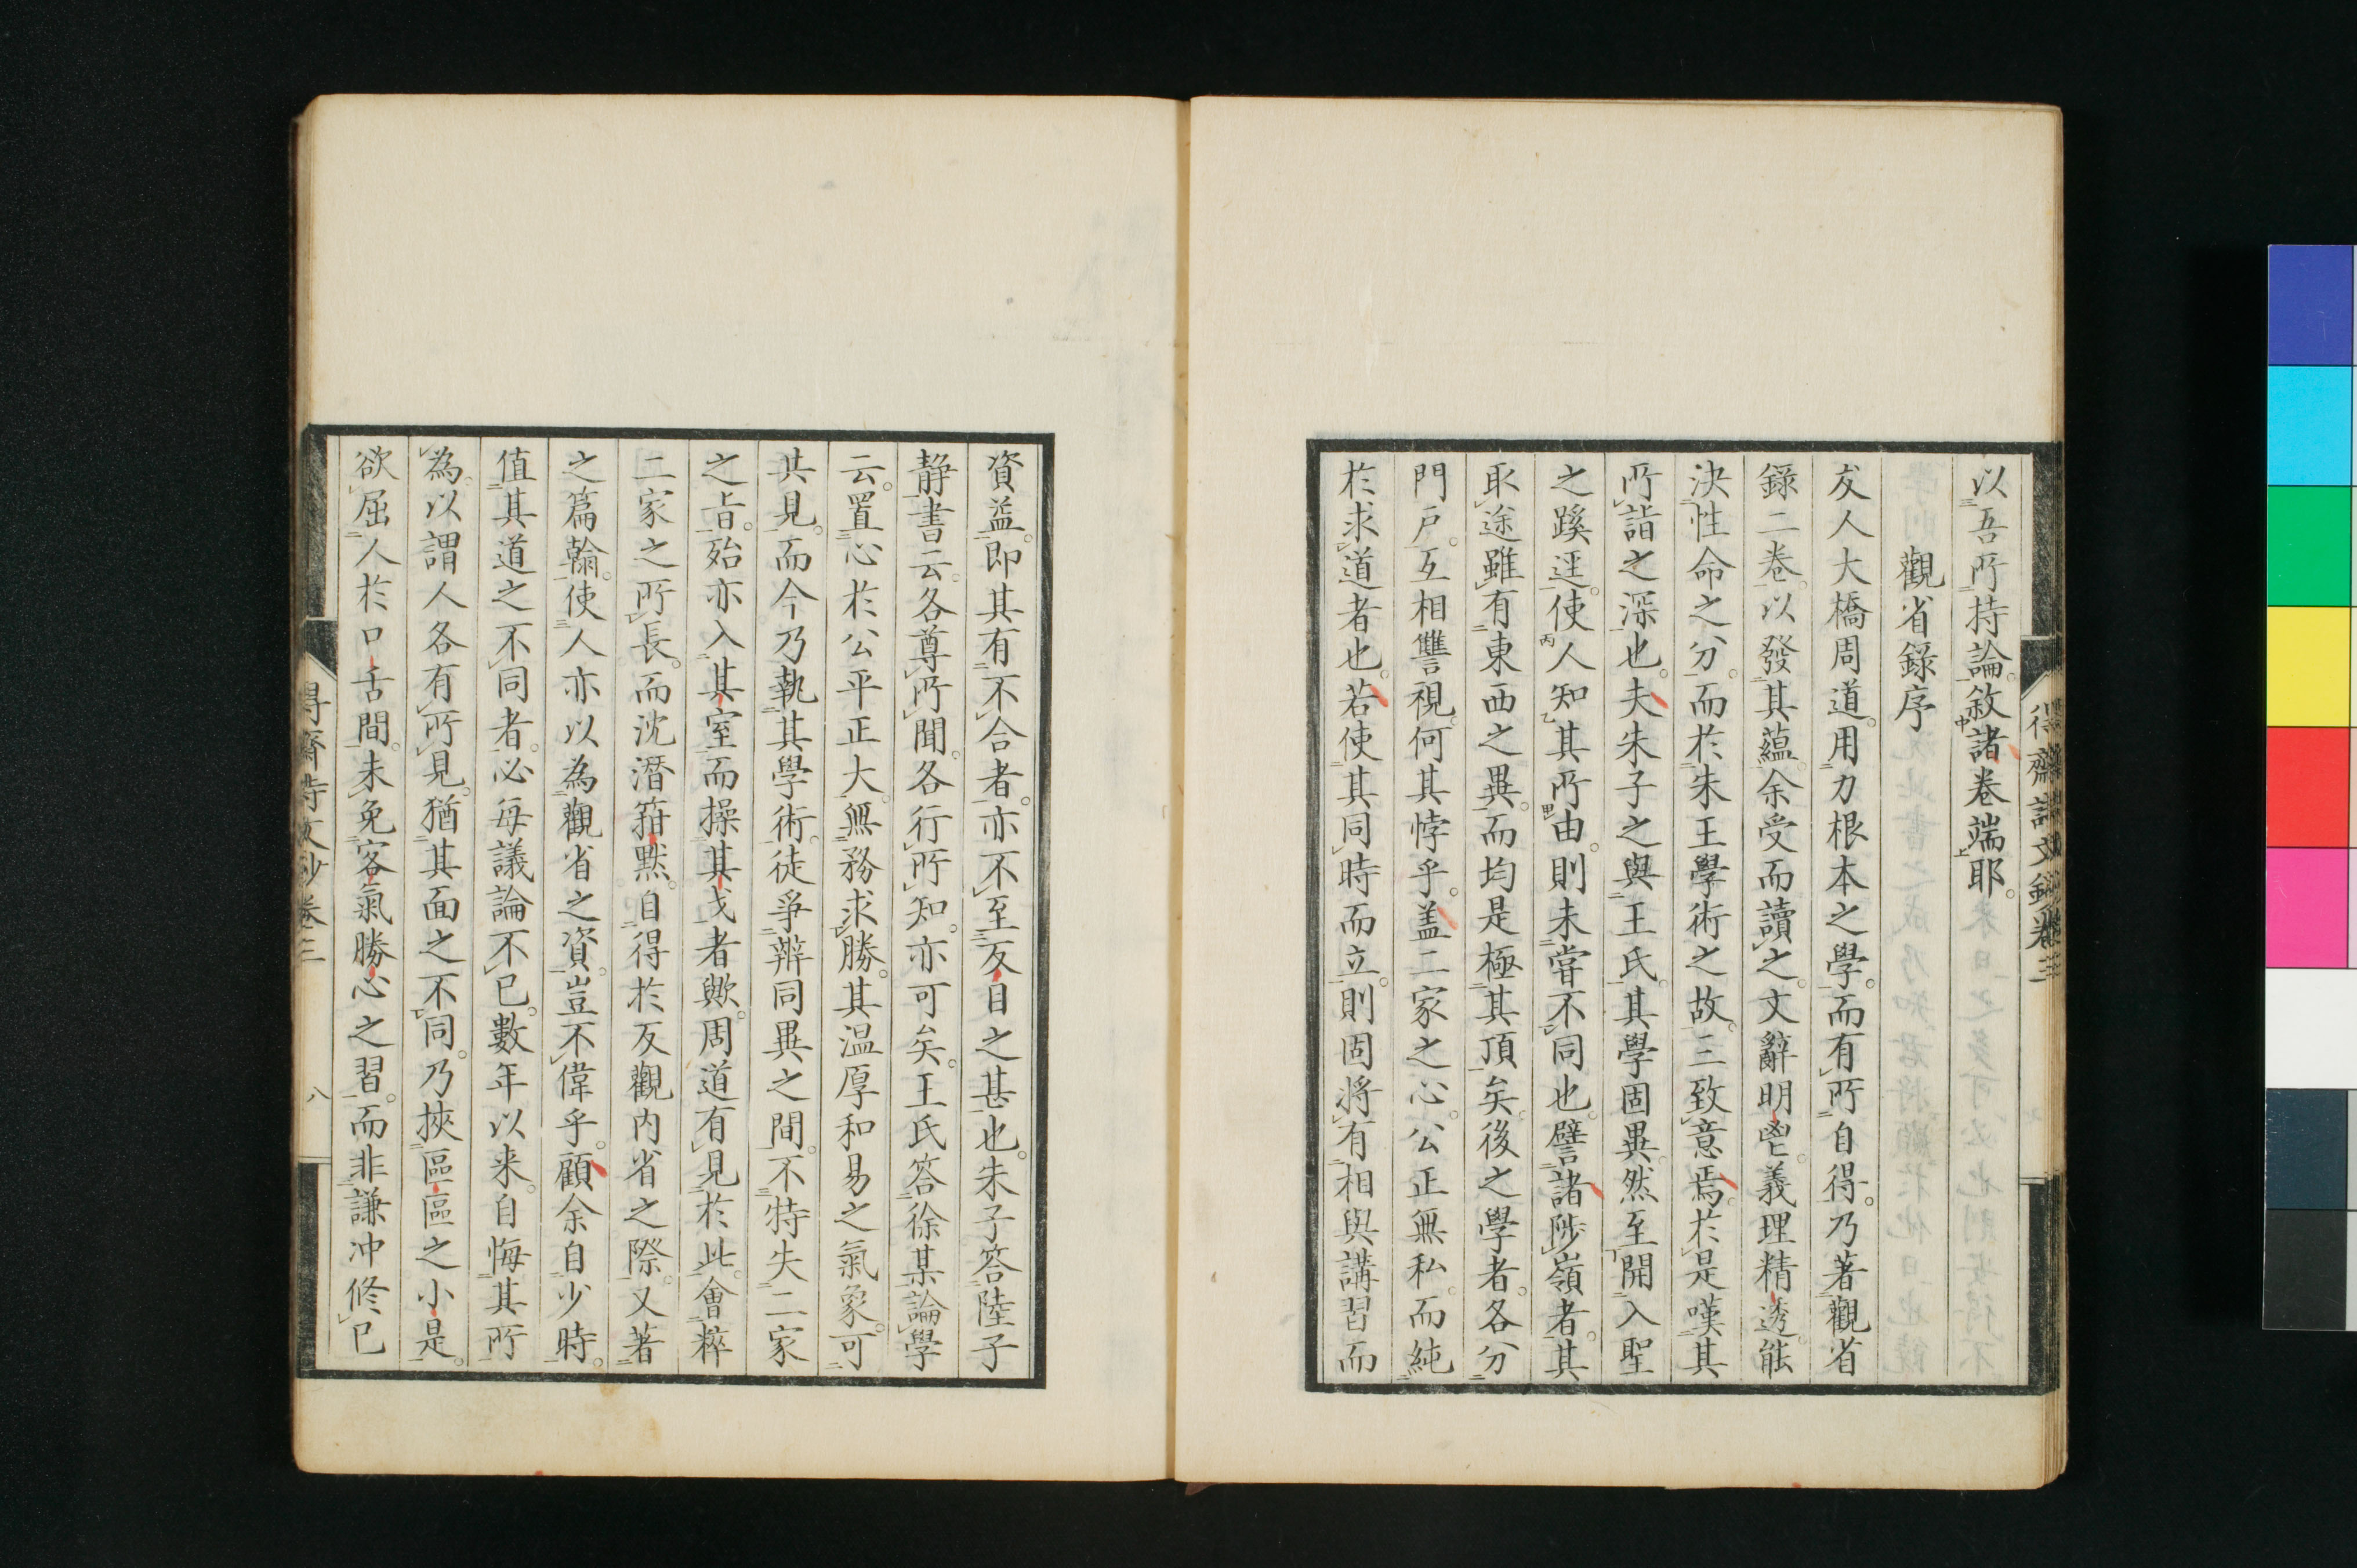 以吾所持論敘諸卷端耶。
觀省録序
友人大橋周道。用力根本之學。而有所自得。乃著觀省
録二卷。以發其蘊。余受而讀之。文辭明鬯。義理精透。能
決性命之分。而於朱王學術之故。三致意焉。於是嘆其
所詣之深也。夫朱子之與王氏。其學固異。然至開入聖
之蹊逕。使人知其所由。則未嘗不同也。譬諸陟嶺者。其
取途雖有東西之異。而均是極其頂矣。後之學者。各分
門戸。互相讐視。何其悖乎。盖二家之心。公正無私。而純
於求道者也。若使其同時而立。則固将有相與講習而
資益。即其有不合者。亦不至反目之甚也。朱子答陸子
静書云。各尊所聞。各行所知。亦可矣。王氏答徐某論學
云。置心於公平正大。無務求勝。其温厚和易之氣象。可
共見。而今乃執其學術。徒爭辯同異之間。不特失二家
之旨。殆亦入其室而操其戈者歟。周道有見於此。會粹
二家之所長。而沈潛箝黙。自得於反觀内省之際。又著
之篇翰。使人亦以為觀省之資。豈不偉乎。顧余自少時。
値其道之不同者。必每議論不已。數年以来。自悔其所
為。以謂人各有所見。猶其面之不同。乃挾區區之小是。
欲屈人於口舌間。未免客氣勝心之習。而非謙冲修已
得齋詩文鈔卷三
八